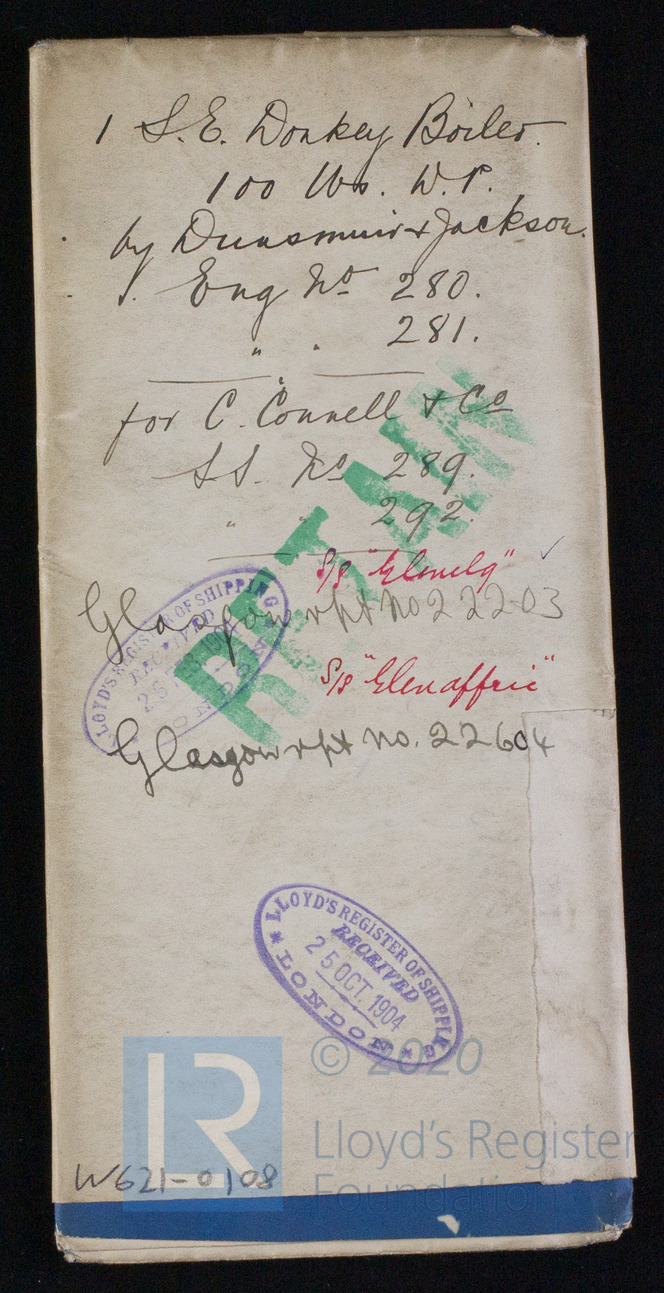 1 S.E. Donkey Boiler.
100 lbs. W.P.
by Dunsmuir & Jackson.
Eng No 280.
" " 281.
for C. Connell & Co
SS. No 289.
" " 292.
S/S "Glenelg" ✓
Glasgow rpt no 22203
S/S "Glenaffric"
Glasgow rpt no. 22604
RETAIN
LLOYD'S REGISTER OF SHIPPING
RECEIVED
25
LONDON
LLOYD'S REGISTER OF SHIPPING
RECEIVED
25 OCT. 1904
LONDON
© 2020
LR
Lloyd's Register
Foundation
W621-0108